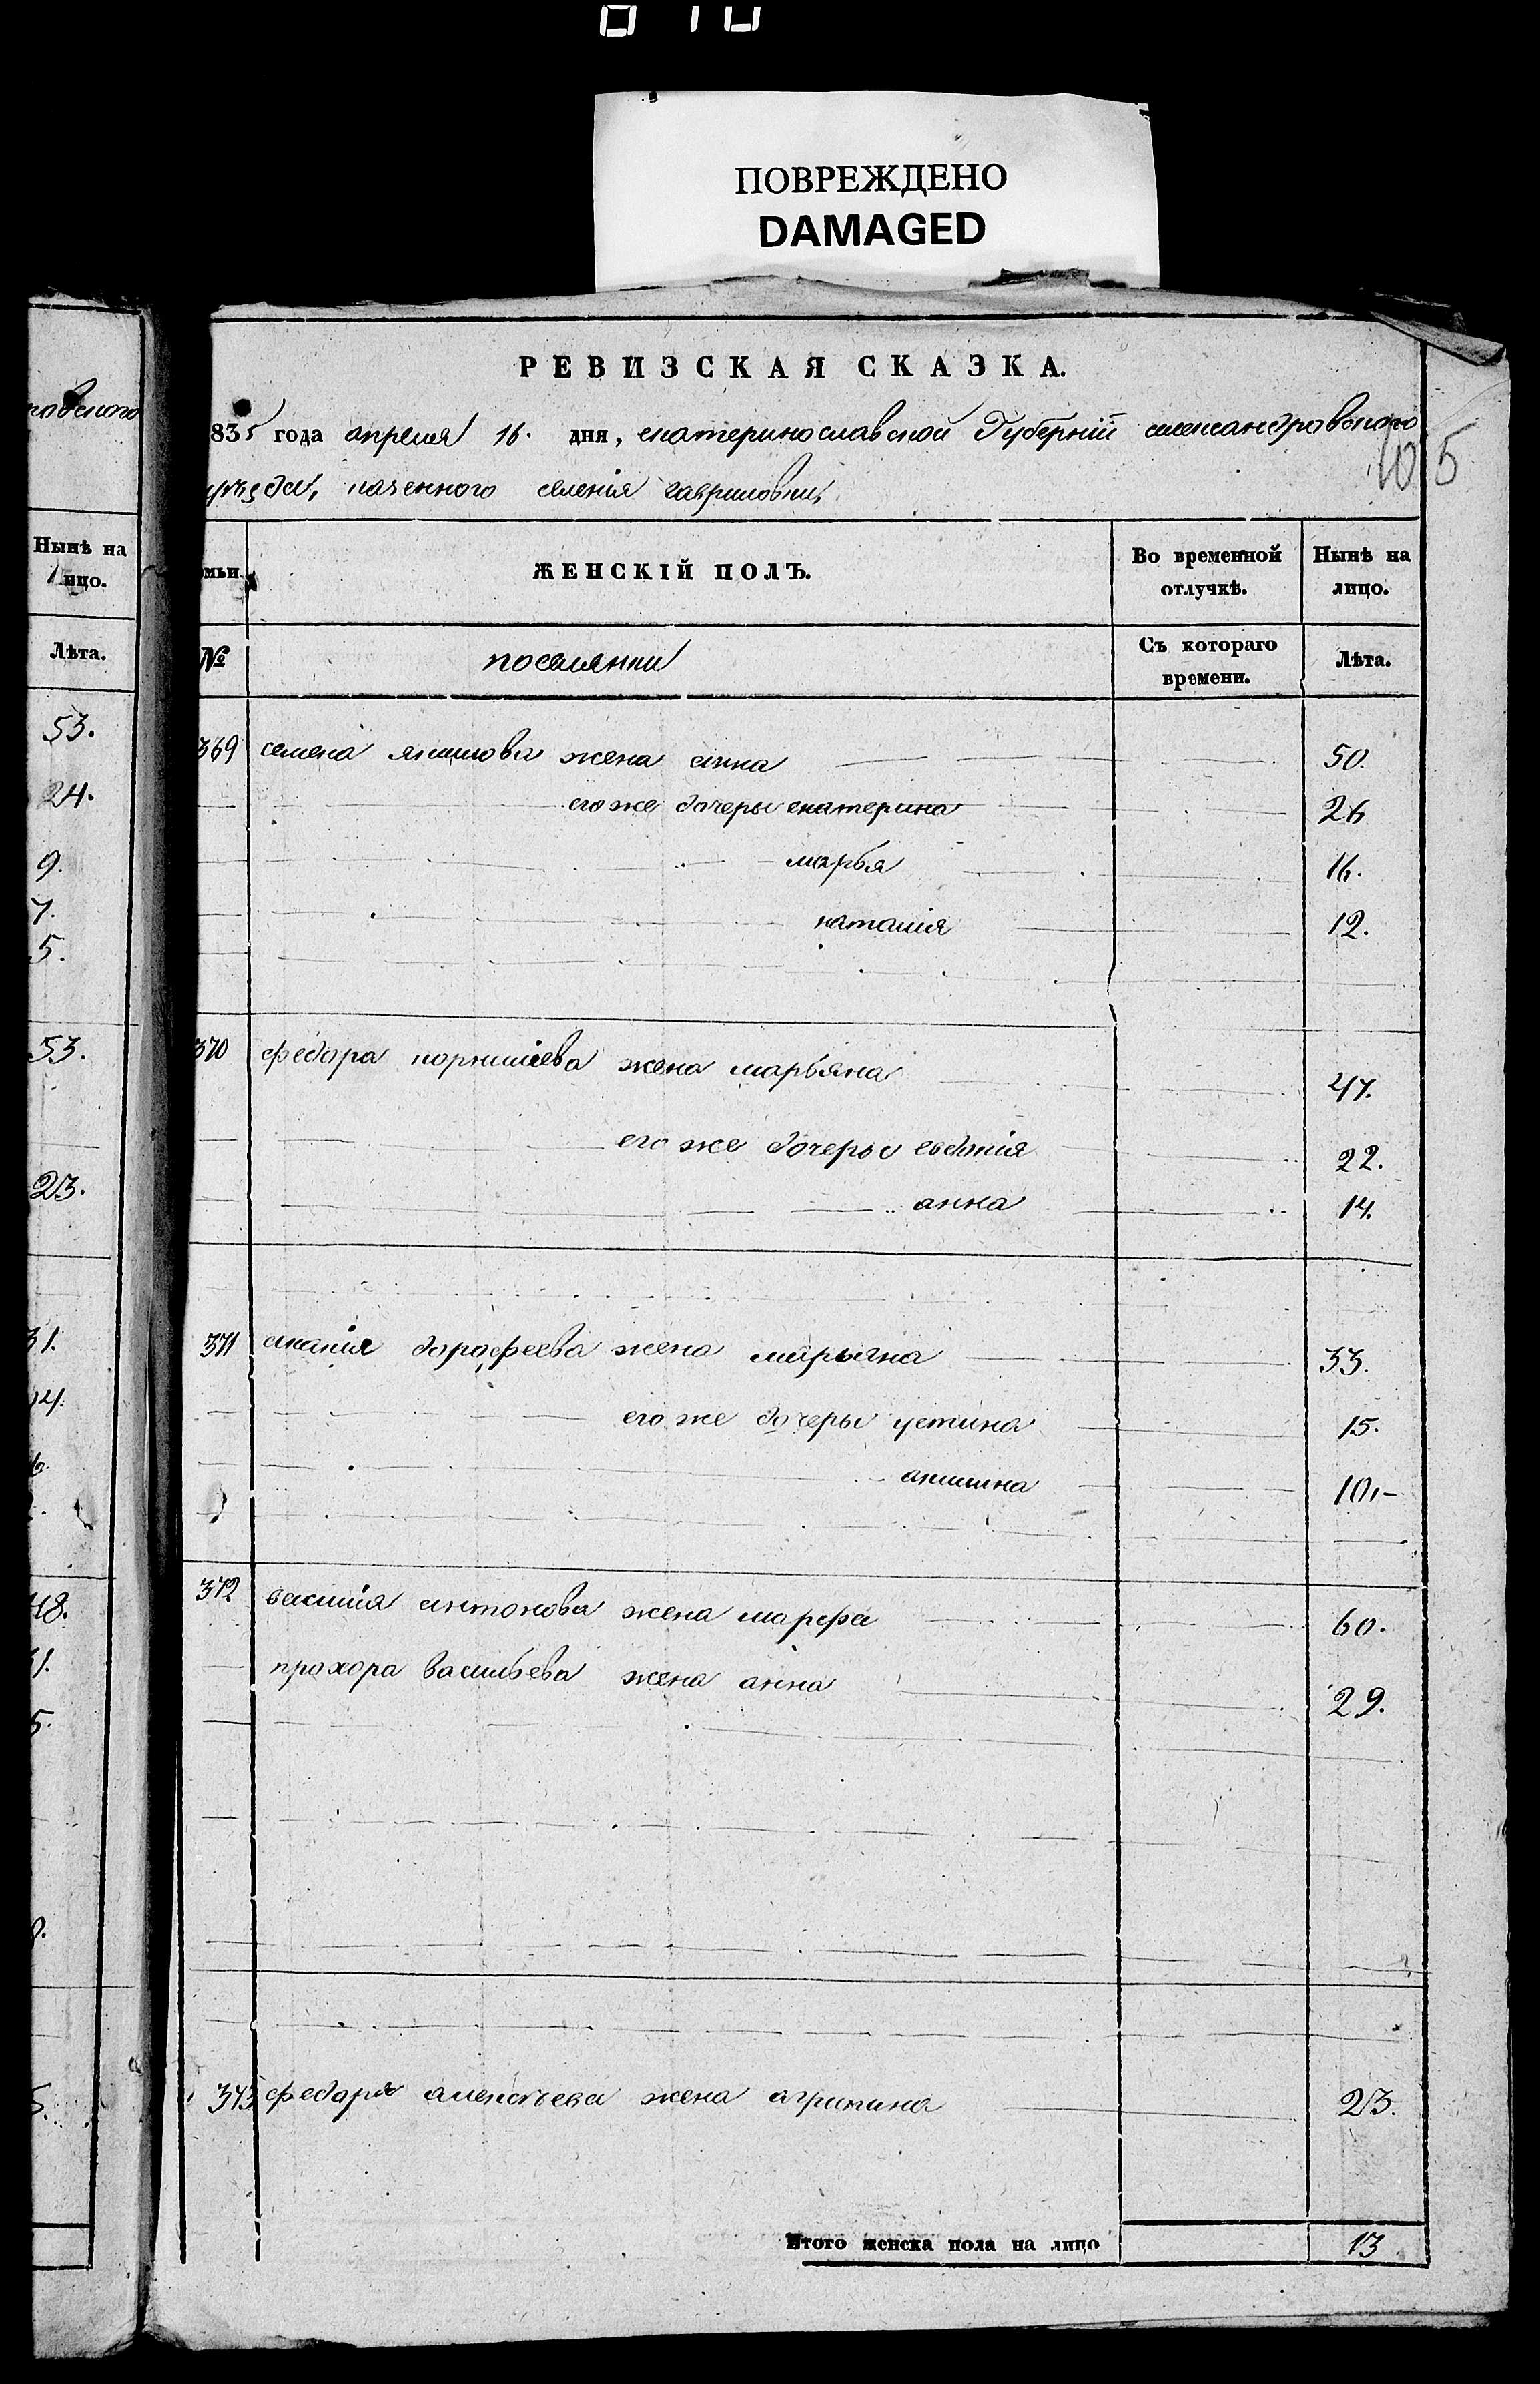 ПОВРЕЖДЕНО
DAMAGED
РЕВИЗСКАЯ СКАЗКА.
835 года апреля 16. дня, екатеринославской Губерніи александровского
уѣзда, казенного селенія гавриловки,
105
мьи.
ЖЕНСКІЙ ПОЛЪ.
Во временной отлучкѣ.
Нынѣ на лицо.
№
поселянки
Съ котораго времени.
Лѣта.
369 семена якимова жена анна 50.
его же дочеры екатерина 26
марья 16.
наталія 12.
370 федора корнилиева жена марьяна 47.
его же дочеры евдокія 22.
анна 14.
371 анания дорофеева жена марьяна 33.
его же дочеры устина 15.
акилина 10.-
372 василия антонова жена марфа 60.
прохора васильева жена анна 29.
373 федора алексѣева жена агрипина 23.
Итого женска пола на лицо 13
ровского
Нынѣ на
лицо.
Лѣта.
53.
24.
9.
7.
5.
53.
23.
31.
48.
5.